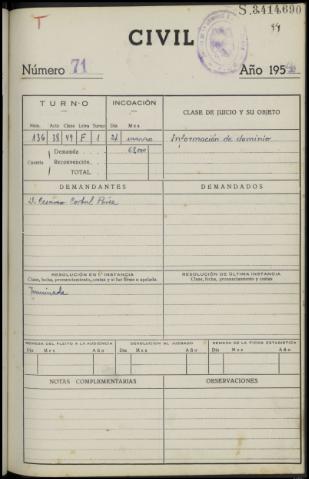 T
S.3.414.690
44
CIVIL
Número 71 Año 195
TURNO
INCOACIÓN
CLASE DE JUICIO Y SU OBJETO
Núm. Acto Clase Letra Turno Día Mes
136 38 49 F 1 21 enero Información de dominio
Cuantía
Demanda
Reconvención
TOTAL
DEMANDANTES
DEMANDADOS
D.
RESOLUCIÓN EN 1ª INSTANCIA
Clase, fecha, pronunciamiento, costas y si fué firme o apelada
RESOLUCIÓN DE ÚLTIMA INSTANCIA
Clase, fecha, pronunciamiento y costas
Terminado
REMESA DEL PLEITO A LA AUDIENCIA
DEVOLUCIÓN AL JUZGADO
REMESA DE LA FICHA ESTADÍSTICA
Día Mes Año Día Mes Año Día Mes Año
NOTAS COMPLEMENTARIAS
OBSERVACIONES